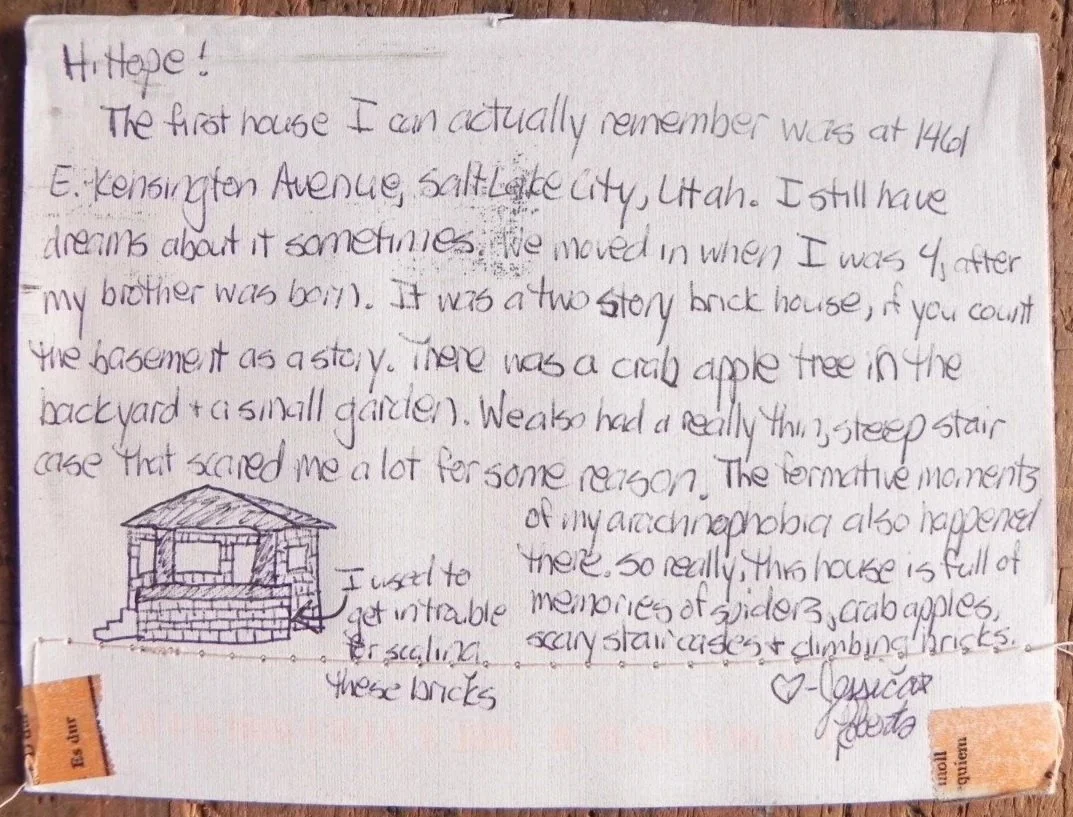 Hi Hope!
The first house I can actually remember was at 1461
E. Kensington Avenue, Salt Lake City, Utah. I still have
dreams about it sometimes. We moved in when I was 4, after
my brother was born. It was a two story brick house, if you count
the basement as a story. There was a crab apple tree in the
backyard + a small garden. We also had a really thin, steep stair
case that scared me a lot for some reason. The formative moments
of my arachnophobia also happened
there. So really, this house is full of
memories of spiders, crab apples,
scary stair cases + climbing bricks.
I used to
get in trouble
for scaling
these bricks
♡-Jessica
Roberts
Es dur
moll
quiem